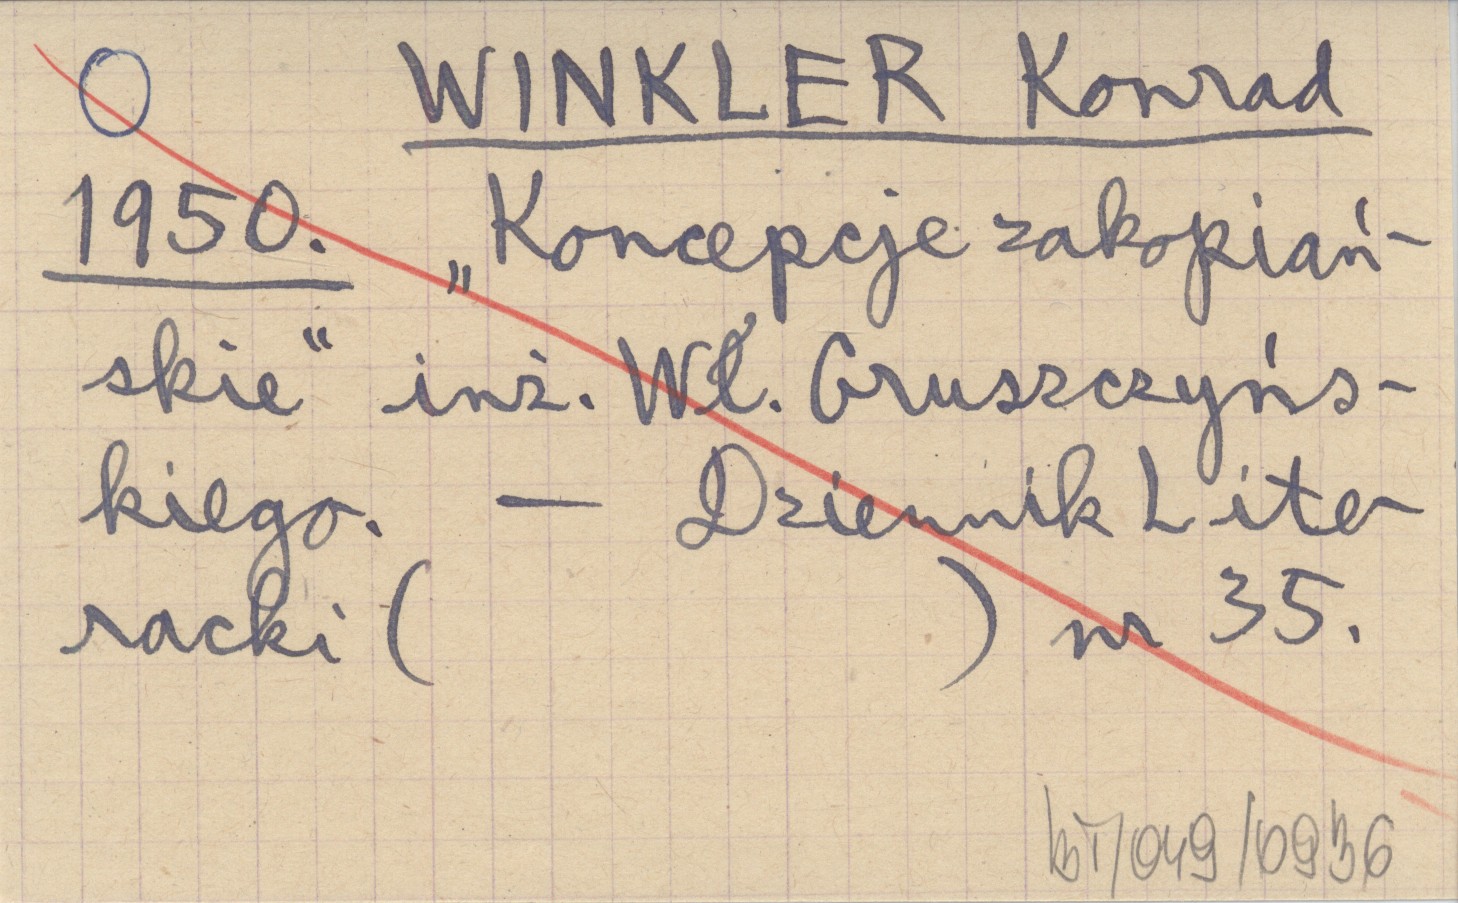 O WINKLER Konrad
1950. „Koncepcje zakopiań-
skie“ inż. Wł. Gruszczyńs-
kiego. — Dziennik Lite-
racki ( ) nr 35.
/049/0936